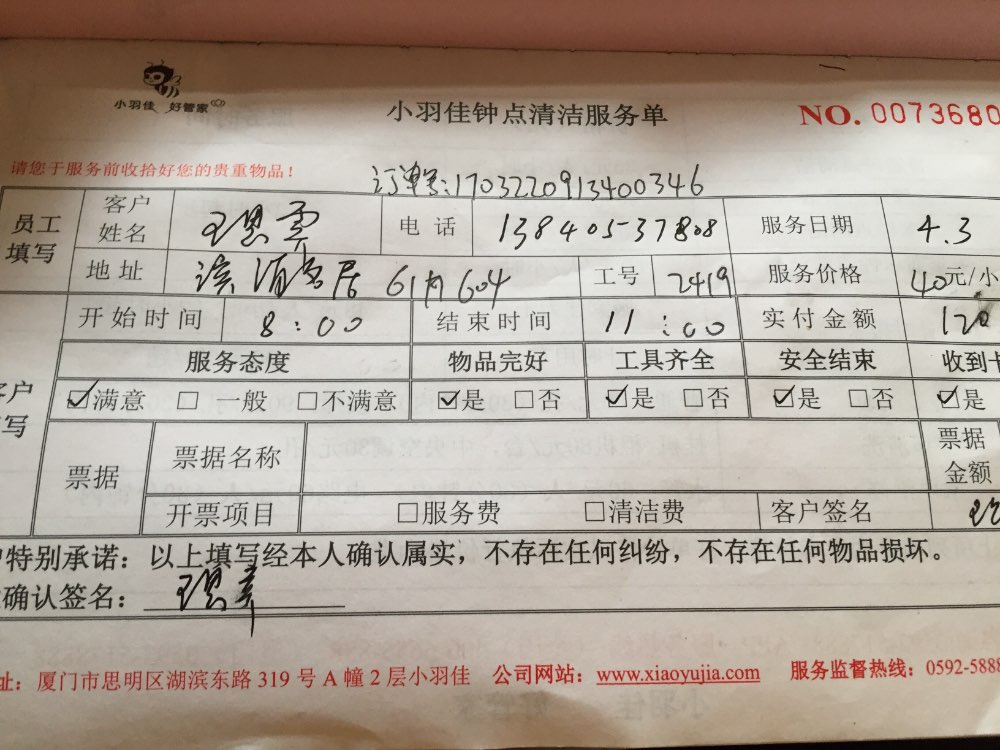 小羽佳 好管家
小羽佳钟点清洁服务单
NO. 0073680
请您于服务前收拾好您的贵重物品！
订单号:1703220913400346
员工填写 客户姓名 电话 13840537808 服务日期 4.3
地址 604 工号 2419 服务价格 40元/小
开始时间 8:00 结束时间 11:00 实付金额 120
服务态度 物品完好 工具齐全 安全结束 收到卡
☑满意 □一般 □不满意 ☑是 □否 ☑是 □否 ☑是 □否 ☑是
票据 票据名称 票据金额
开票项目 □服务费 □清洁费 客户签名
特别承诺：以上填写经本人确认属实，不存在任何纠纷，不存在任何物品损坏。
确认签名：
址：厦门市思明区湖滨东路 319 号 A 幢 2 层小羽佳 公司网站：www.xiaoyujia.com 服务监督热线：0592-5888